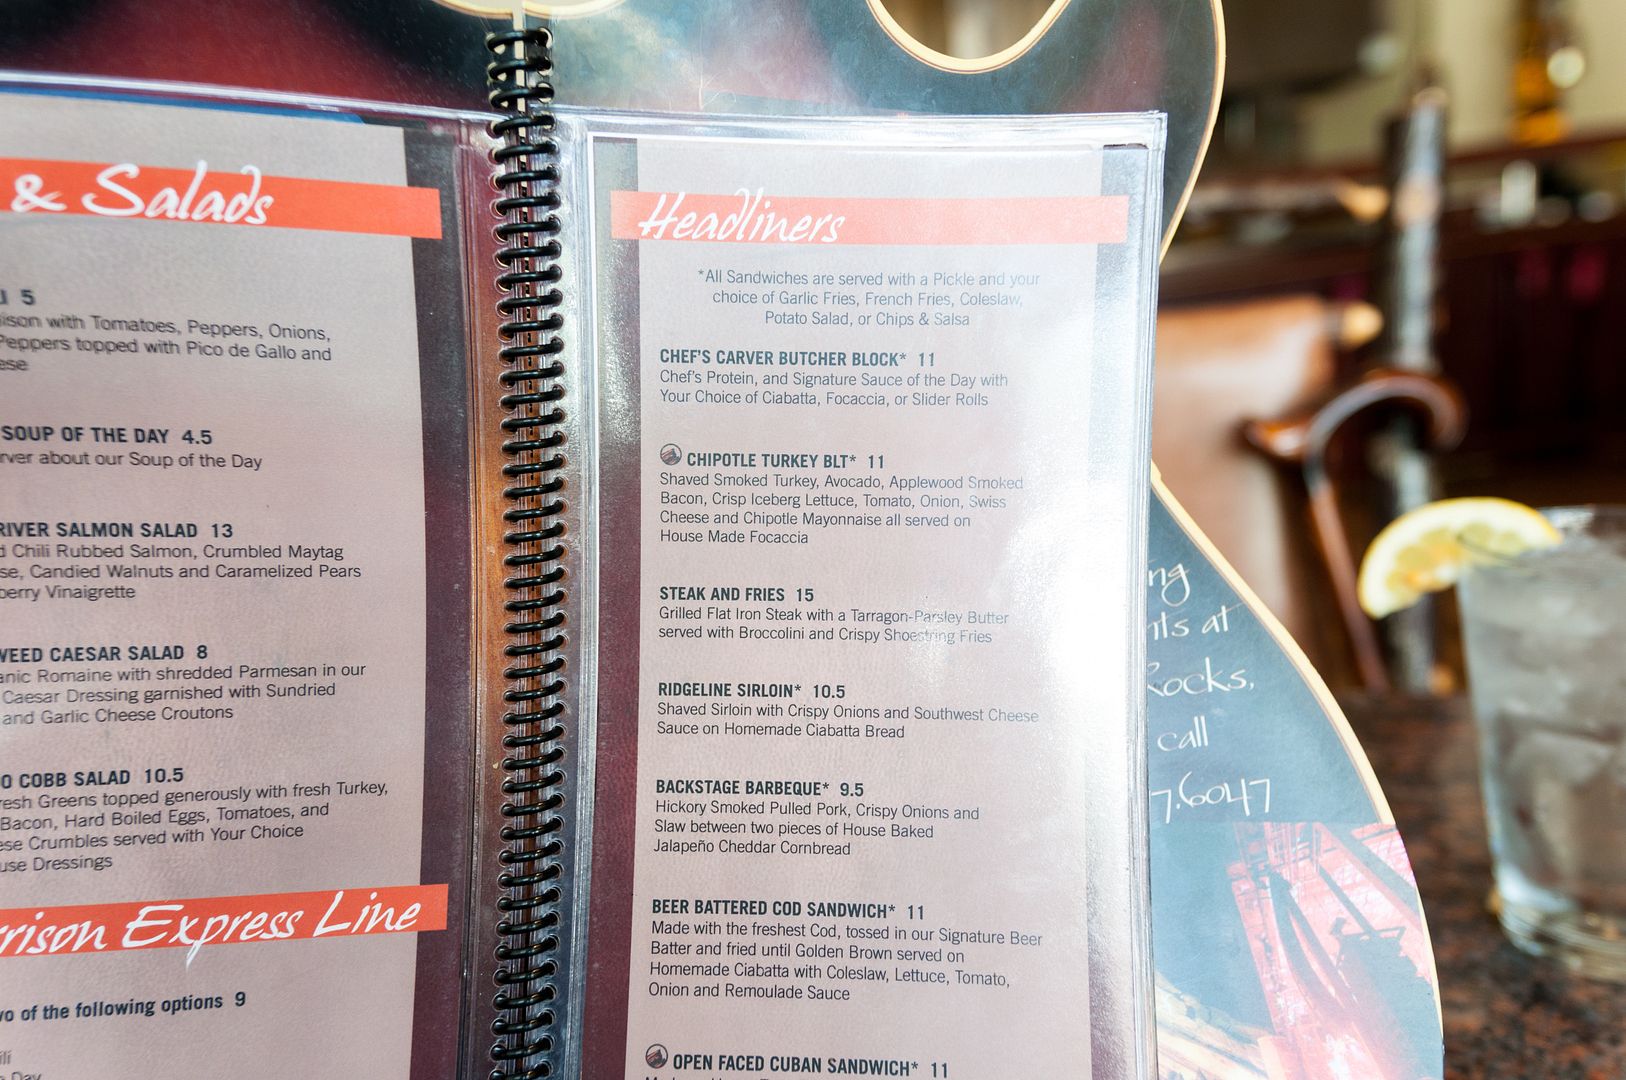 & Salads
5
with Tomatoes, Peppers, Onions,
Peppers topped with Pico de Gallo and
SOUP OF THE DAY 4.5
about our Soup of the Day
RIVER SALMON SALAD 13
Chili Rubbed Salmon, Crumbled Maytag
Candied Walnuts and Caramelized Pears
Vinaigrette
CAESAR SALAD 8
Romaine with shredded Parmesan in our
Caesar Dressing garnished with Sundried
and Garlic Cheese Croutons
COBB SALAD 10.5
Greens topped generously with fresh Turkey,
Bacon, Hard Boiled Eggs, Tomatoes, and
Crumbles served with Your Choice
Dressings
Express Line
of the following options 9
Day
Headliners
*All Sandwiches are served with a Pickle and your
choice of Garlic Fries, French Fries, Coleslaw,
Potato Salad, or Chips & Salsa
CHEF'S CARVER BUTCHER BLOCK* 11
Chef's Protein, and Signature Sauce of the Day with
Your Choice of Ciabatta, Focaccia, or Slider Rolls
CHIPOTLE TURKEY BLT* 11
Shaved Smoked Turkey, Avocado, Applewood Smoked
Bacon, Crisp Iceberg Lettuce, Tomato, Onion, Swiss
Cheese and Chipotle Mayonnaise all served on
House Made Focaccia
STEAK AND FRIES 15
Grilled Flat Iron Steak with a Tarragon-Parsley Butter
served with Broccolini and Crispy Shoestring Fries
RIDGELINE SIRLOIN* 10.5
Shaved Sirloin with Crispy Onions and Southwest Cheese
Sauce on Homemade Ciabatta Bread
BACKSTAGE BARBEQUE* 9.5
Hickory Smoked Pulled Pork, Crispy Onions and
Slaw between two pieces of House Baked
Jalapeño Cheddar Cornbread
BEER BATTERED COD SANDWICH* 11
Made with the freshest Cod, tossed in our Signature Beer
Batter and fried until Golden Brown served on
Homemade Ciabatta with Coleslaw, Lettuce, Tomato,
Onion and Remoulade Sauce
OPEN FACED CUBAN SANDWICH* 11
at
Rocks,
call
7.6047